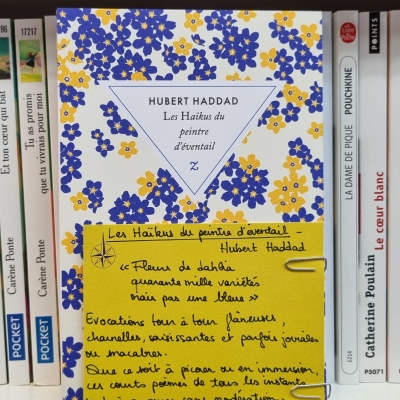 86
Et ton cœur qui bat
Carène Ponte
POCKET
17217
Tu as promis
que tu vivrais pour moi
Carène Ponte
POCKET
HUBERT HADDAD
Les Haïkus du
peintre
d'éventail
Z
Les Haïkus du peintre d'éventail –
Hubert Haddad
« Fleurs de dahlia
quarante mille variétés
mais pas une bleue »
Evocations tour à tour flâneuses,
charnelles, saisissantes et parfois joviales
ou macabres.
Que ce soit à picorer ou en immersion,
ces courts poèmes de tous les instants
sans modération
LA DAME DE PIQUE POUCHKINE
6254
POINTS
Catherine Poulain Le cœur blanc
P5071